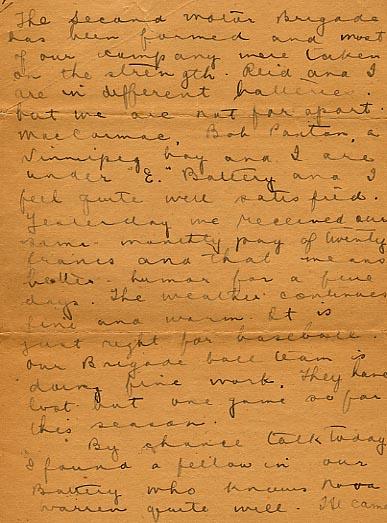 The second motor Brigade
has been formed and most
of our company were taken
on the strength. Reid and I
are in different batteries.
but we are not far apart.
MacCormac, Bob Panton, a
Winnipeg boy and I are
under "E." Battery and I
feel quite well satisfied.
Yesterday we received our
semi-monthly pay of twenty
francs and that means
better humor for a few
days. The weather continues
fine and warm. It is
just right for baseball.
Our Brigade ball team is
doing fine work. They have
lost but one game so far
this season.
By chance talk today
I found a fellow in our
Battery who knows Nova
Warren quite well. He came